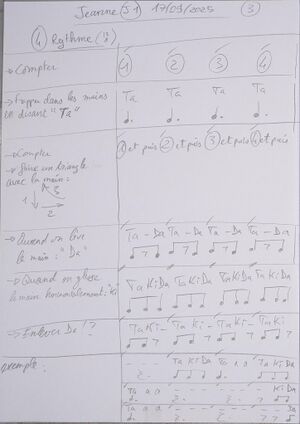 Jeanne (J1) 17/09/2025 (3)
(4) Rythme (12/8)
→ Compter ① ② ③ ④
→ Frapper dans les mains Ta Ta Ta Ta
en disant "Ta" ♩. ♩. ♩. ♩.
→ Compter ① et puis ② et puis ③ et puis ④ et puis
→ faire un triangle
avec la main :
1 ↓ 3
→ 2
→ Quand on lève Ta - Da Ta - Da Ta - Da Ta - Da
la main : "Da"
→ Quand on glisse Ta Ki Da Ta Ki Da Ta Ki Da Ta Ki Da
la main horizontalement : "Ki"
→ Enlever Da ? Ta Ki - Ta Ki - Ta Ki - Ta Ki -
exemple : - - - Ta Ki Da Ta Ta Ki Da
Ta - - - - - - Ki Da
Ta - - - - - - Da